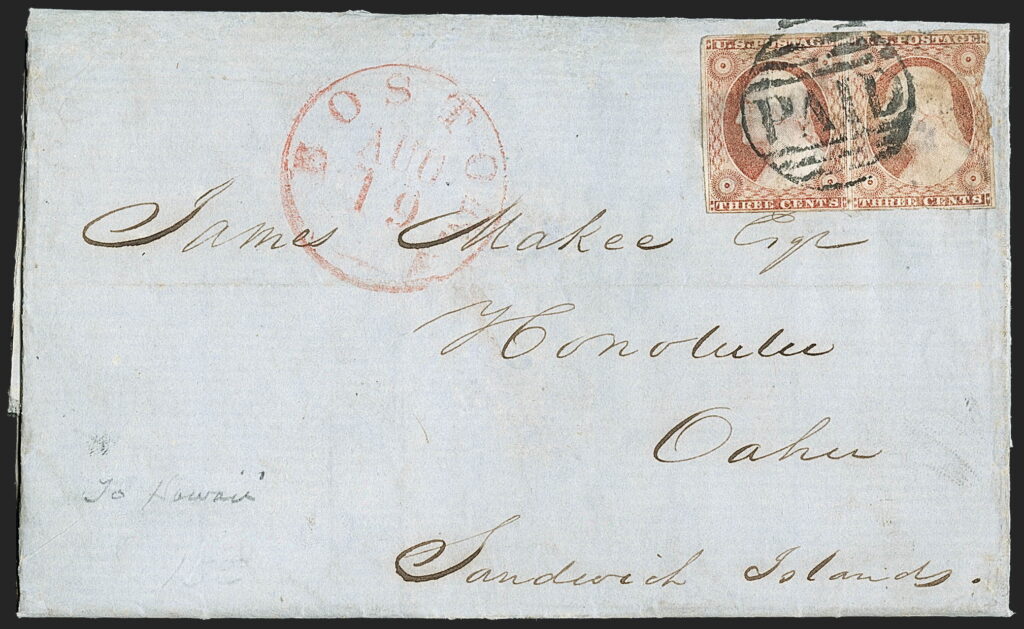 U.S. POSTAGE U.S. POSTAGE
PAID
THREE CENTS THREE CENTS
BOSTON
AUG
19
James Makee Esqr
Honolulu
Oahu
Sandwich Islands.
To Hawaii